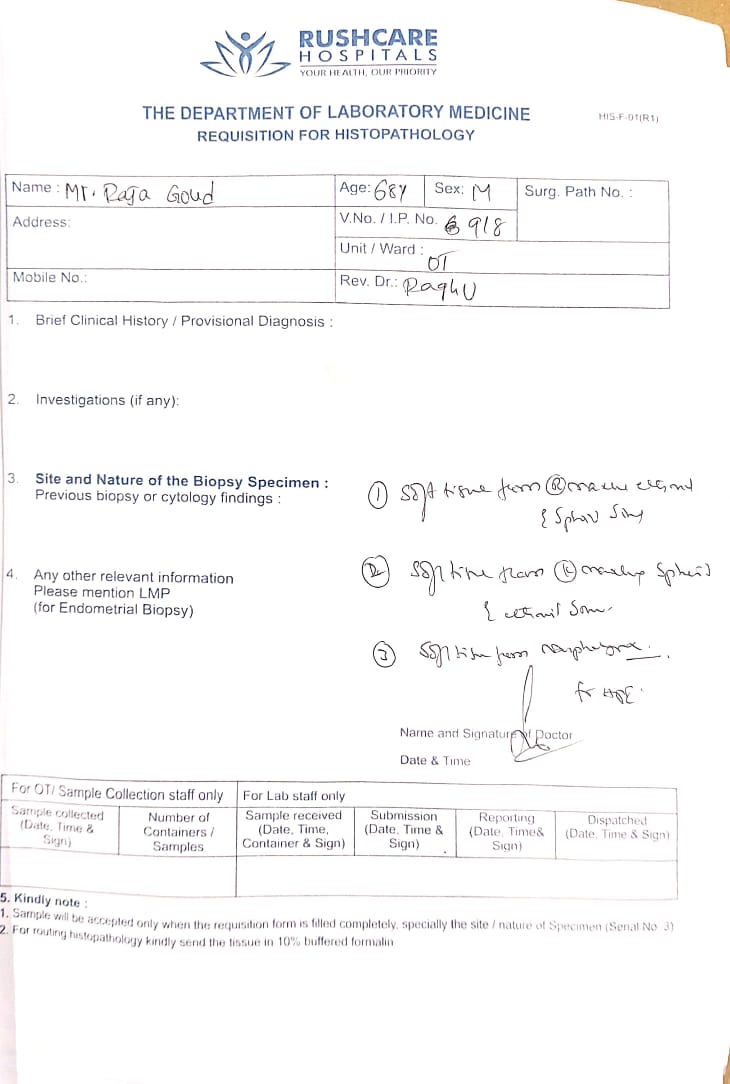 RUSHCARE
HOSPITALS
YOUR HEALTH, OUR PRIORITY
THE DEPARTMENT OF LABORATORY MEDICINE
HIS-F-01(R1)
REQUISITION FOR HISTOPATHOLOGY
Name : Mr. Raja Goud
Age: 68Y
Sex: M
Surg. Path No. :
Address:
V.No. / I.P. No. 918
Unit / Ward : OT
Mobile No.:
Rev. Dr.: Raghu
1. Brief Clinical History / Provisional Diagnosis :
2. Investigations (if any):
3. Site and Nature of the Biopsy Specimen :
Previous biopsy or cytology findings :
① Soft tissue from Ⓡ
4. Any other relevant information
Please mention LMP
(for Endometrial Biopsy)
② Soft tissue from
③ Soft tissue from
for HPE.
Name and Signature of Doctor
Date & Time
For OT/ Sample Collection staff only
For Lab staff only
Sample collected (Date, Time & Sign)
Number of Containers / Samples
Sample received (Date, Time, Container & Sign)
Submission (Date, Time & Sign)
Reporting (Date, Time& Sign)
Dispatched (Date, Time & Sign)
5. Kindly note :
1. Sample will be accepted only when the requisition form is filled completely, specially the site / nature of Specimen (Serial No. 3)
2. For routing histopathology kindly send the tissue in 10% buffered formalin